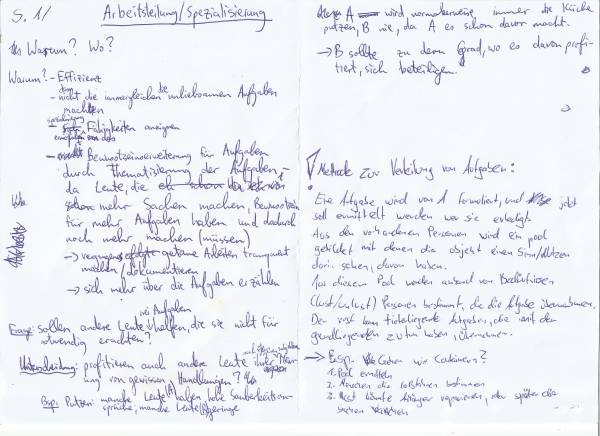 S. 1/ Arbeitsteilung/Spezialisierung
Warum? Wo?
Warum? - Effizienz
- nicht die immergleichen die unliebsamen Aufgaben
machten
- Fähigkeiten aneignen
- Bewusstseinserweiterung für Aufgaben
durch Thematisierung der Aufgaben,
da Leute, die
schon mehr Sachen machen, Bewusstsein
für mehr Aufgaben haben und dadurch
noch mehr machen (müssen)
→ getane Arbeiten transparent
machen/dokumentieren
→ sich mehr über die Aufgaben erzählen
bei Aufgaben
Frage: sollen andere Leute helfen, die sie nicht für
notwendig erachten?
Unterscheidung: profitieren auch andere Leute
von gewissen Handlungen?
Bsp. Putzen: manche Leute haben hohe Sauberkeitsan-
sprüche, manche Leute geringe
A wird normalerweise immer die Küche
putzen, B nie, da A es schon davor macht.
→ B sollte zu dem Grad, wo es davon profi-
tiert, sich beteiligen.
! Methode zur Verteilung von Aufgaben:
Eine Aufgabe wird von 1 formuliert, und jetzt
soll ermittelt werden wer sie erledigt
Aus den vorhandenen Personen wird ein pool
gebildet mit denen die objekt einen Sinn/Nutzen
darin sehen, davon haben.
Aus diesem Pool werden anhand von Bedürfnissen
(Lust/Unlust) Personen bestimmt, die die Aufgabe übernehmen.
Der rest kann Aufgaben, die mit der
zu tun haben übernehmen.
→ Bsp. Gehen wir Containern?
1. Pool ermitteln
2. Menschen die losfahren bestimmen
3. Rest könnte reparieren, oder später die
Sachen